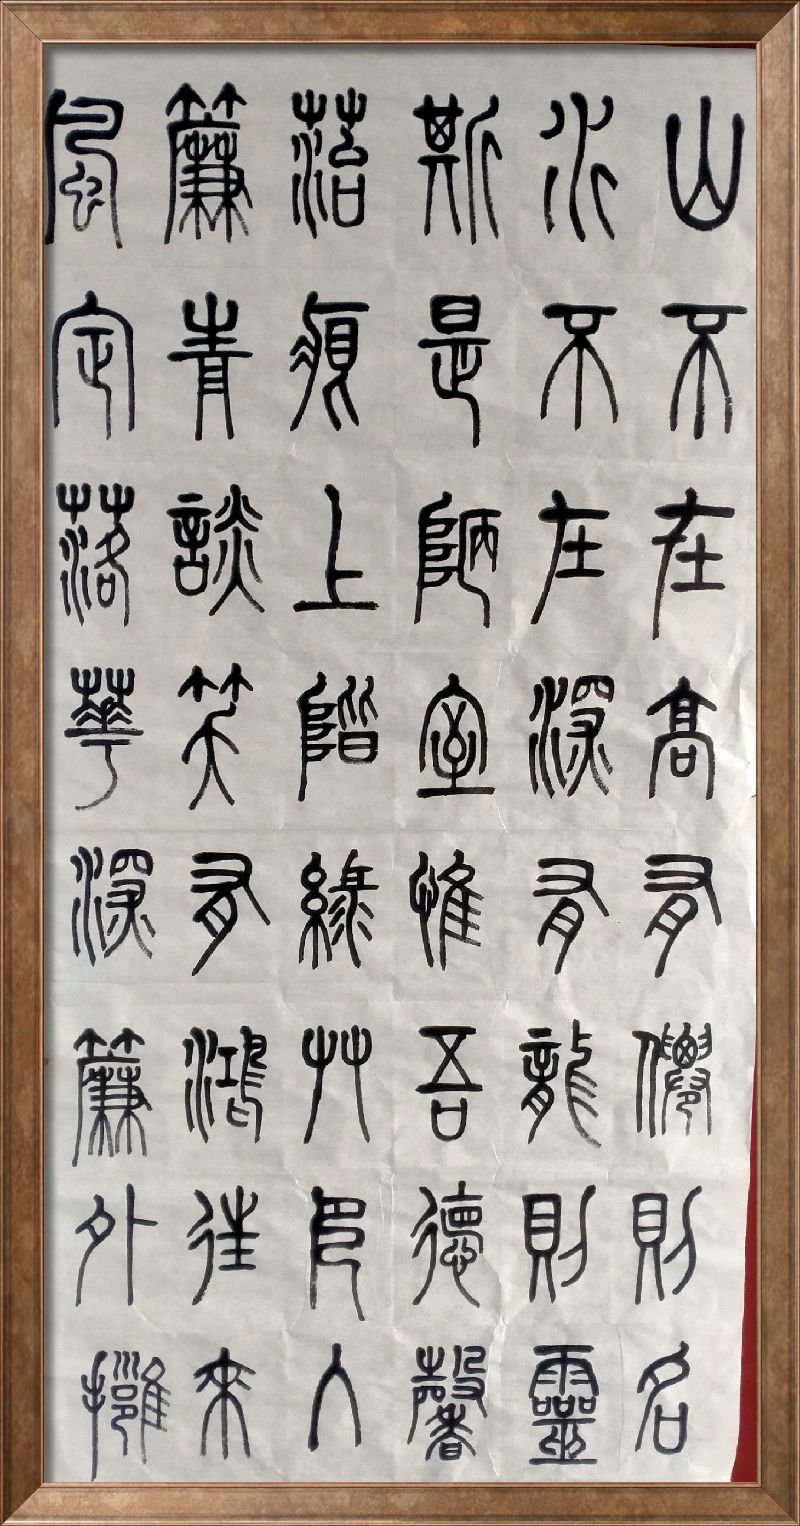 山不在高有僊則名
水不在深有龍則靈
斯是陋室惟吾德馨
菭痕上階綠艸色入
簾青談笑有鴻往來
風定落華深簾外擁